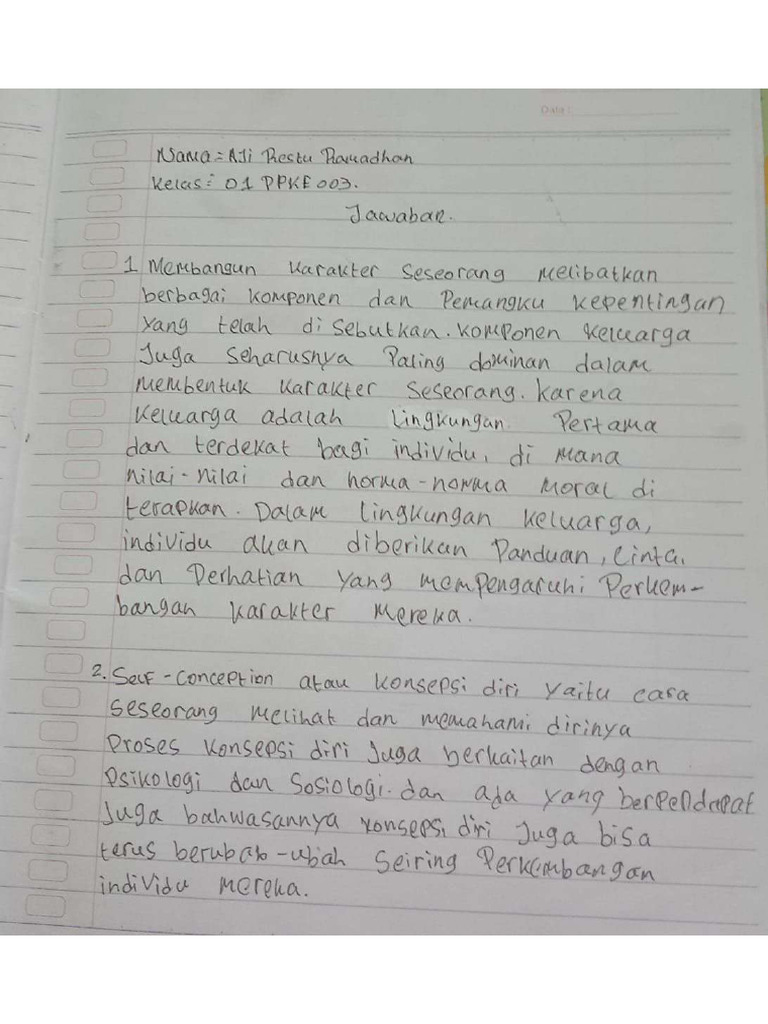 Date :
Nama = Aji Restu Ramadhan
Kelas : 01 PPKE 003.
Jawaban.
1 Membangun Karakter Seseorang melibatkan
berbagai komponen dan Pemangku kepentingan
yang telah di sebutkan. Komponen Keluarga
Juga Seharusnya Paling dominan dalam
membentuk Karakter Seseorang. Karena
Keluarga adalah Lingkungan Pertama
dan terdekat bagi individu, di mana
nilai-nilai dan norma-norma moral di
terapkan. Dalam lingkungan keluarga,
individu akan diberikan Panduan, Cinta,
dan Perhatian yang mempengaruhi Perkem-
bangan Karakter Mereka.
2. Self-Conception atau Konsepsi diri yaitu cara
Seseorang Melihat dan memahami dirinya
Proses Konsepsi diri Juga berkaitan dengan
Psikologi dan Sosiologi. dan ada yang berpendapat
Juga bahwasannya Konsepsi diri Juga bisa
terus berubah-ubah Seiring Perkembangan
individu Mereka.